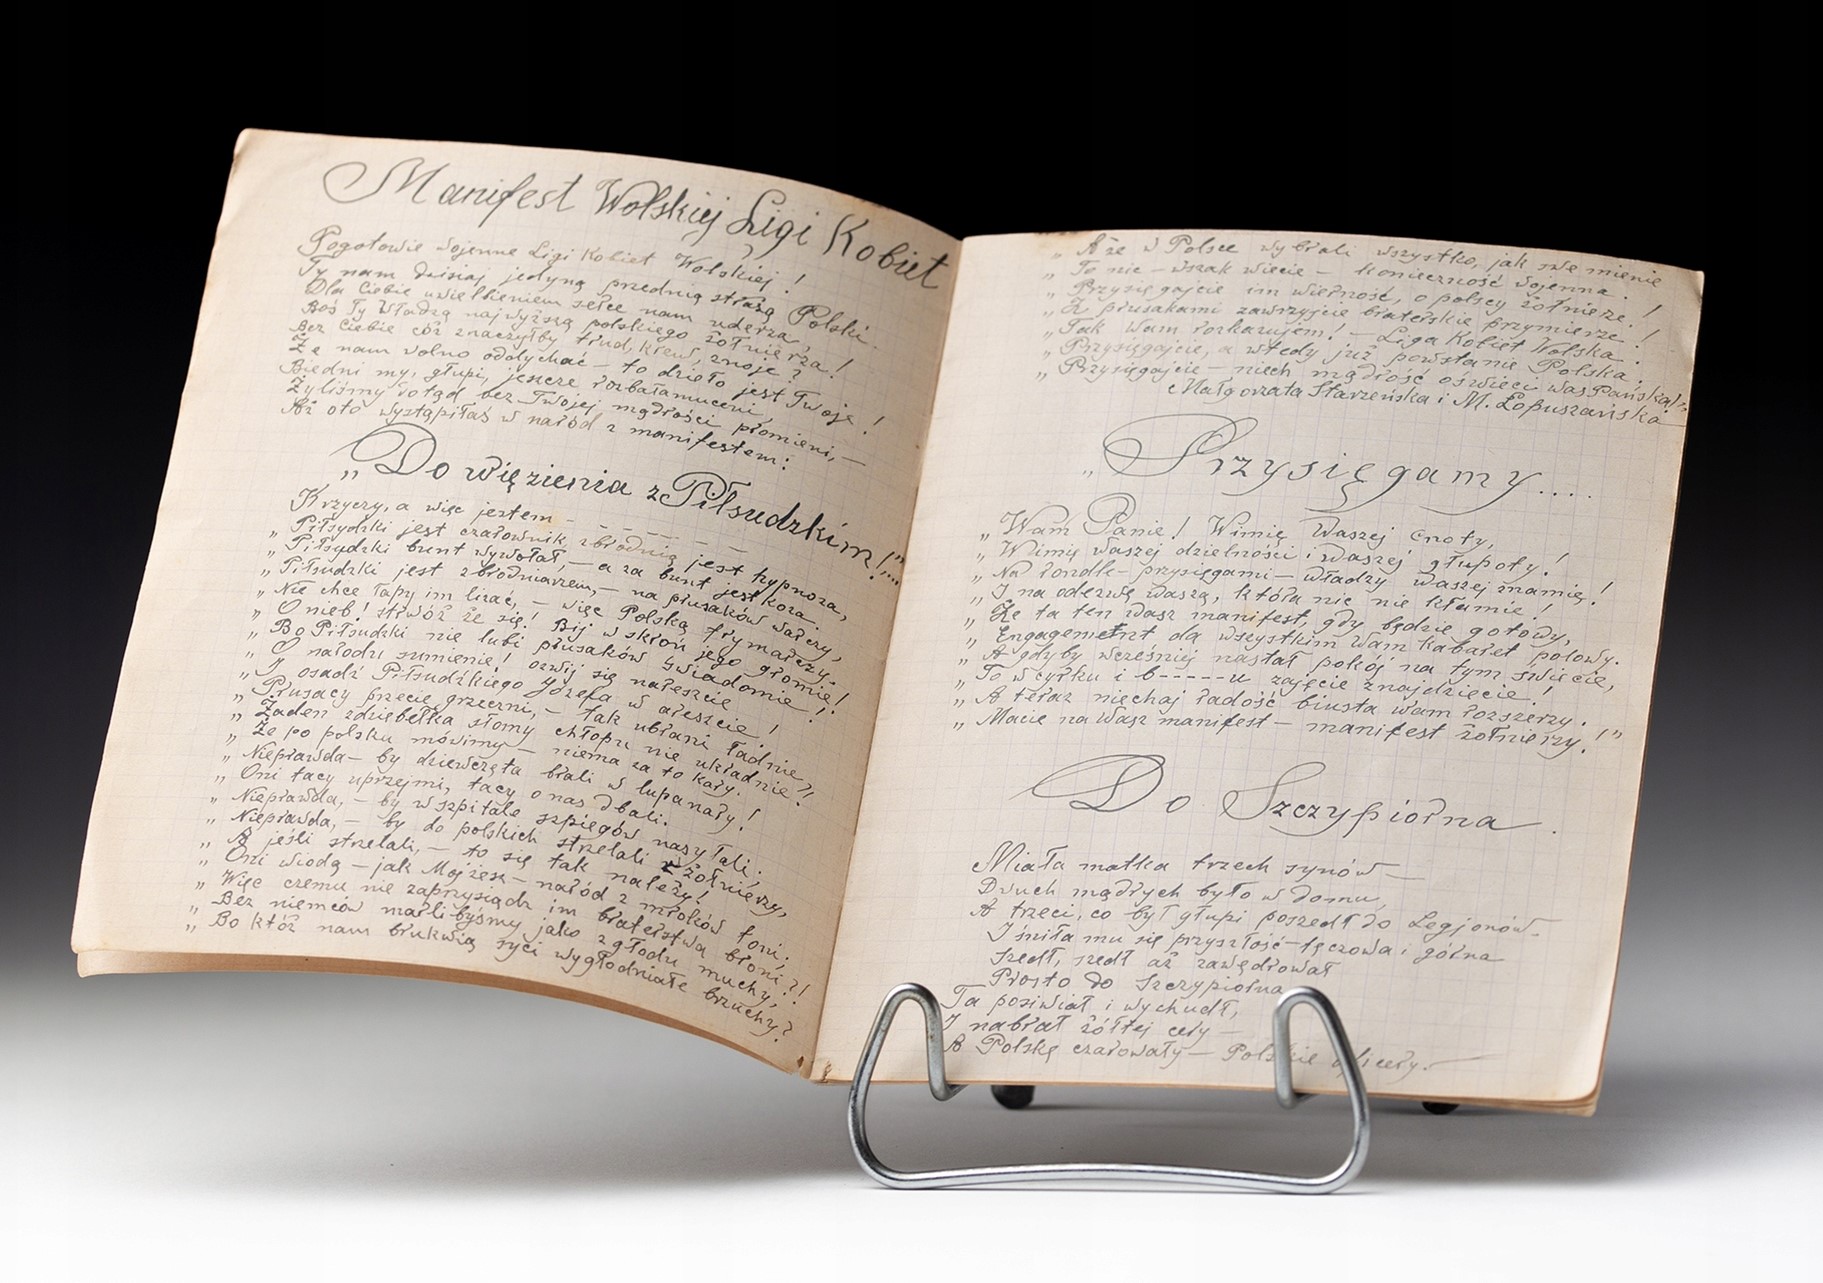 Manifest Wolskiej Ligi Kobiet
Pogotowie wojenne Ligi Kobiet Wolskiej!
Ty nam dzisiaj jedyną przednią strażą Polski.
Dla Ciebie uwielbieniem serce nam uderza,
Boś Ty władzą najwyższą polskiego żołnierza!
Bez Ciebie cóż znaczyłby trud, krew, znoje?
Że nam wolno oddychać – to dzieło jest Twoje!
Biedni my, głupi, jeszcze rozbałamuceni,
Żyliśmy dotąd bez Twojej mądrości płomieni, –
Aż oto wystąpiłaś w naród z manifestem:
„Do więzienia z Piłsudzkim!"...
Krzyczy, a więc jestem – – – – – –
„Piłsudzki jest czarownik, zbrodnią jest hypnoza,
„Piłsudzki bunt wywołał, – a za bunt jest koza.
„Piłsudzki jest zbrodniarzem, – na prusaków warczy,
„Nie chce łapy im lizać, – więc Polską frymarczy.
„O nieb! stwórz że się! Bij w skroń jego gromie!
„Bo Piłsudzki nie lubi prusaków świadomie!
„O narodu sumienie! ozwij się nareszcie!
„I osadź Piłsudzkiego Józefa w areszcie!
„Prusacy przecie grzeczni, – tak ubrani ładnie,
„Żaden zdziebełka słomy chłopu nie układnie?!
„Że po polsku mówimy – niema za to kary.
„Nieprawda – by dziewczęta brali w lupanary!
„Oni tacy uprzejmi, tacy o nas dbali.
„Nieprawda, – by w szpitale szpiegów nasyłali.
„Nieprawda, – by do polskich strzelali żołnierzy,
„A jeśli strzelali, – to się tak należy!
„Oni wiodą – jak Mojżesz – naród z mroków toni;
„Więc czemu nie zaprzysiądz im braterstwa broni?!
„Bez niemców marlibyśmy jako z głodu muchy,
„Bo któż nam brukwią syci wygłodniałe brzuchy?
„A że w Polsce wybrali wszystko, jak swe mienie
„To nic – wszak wiecie – konieczność wojenna.
„Przysięgajcie im wierność, o polscy żołnierze!
„Z prusakami zawrzyjcie braterskie przymierze!
„Tak Wam rozkazujem! – Liga Kobiet Wolska.
„Przysięgajcie, a wtedy już powstanie Polska,
„Przysięgajcie – niech mądrość oświeci was Pańska!"
Małgorzata Starzeńska i M. Łopuszańska
„Przysięgamy....
„Wam Panie! W imię Waszej cnoty,
„W imię waszej dzielności i waszej głupoty!
„Na rondle – przysięgami – władzy waszej mamię!
„I na odezwę waszą, która nic nie kłamie!
„Że ta ten wasz manifest, gdy będzie gotowy,
„Engagement da wszystkim wam kabaret polowy.
„A gdyby wcześniej nastał pokój na tym świecie,
„To w cyrku i b-----u zajęcie znajdziecie!
„A teraz niechaj radość biusta wam rozszerzy.
„Macie na Wasz manifest – manifest żołnierzy!"
Do Szczypiorna.
Miała matka trzech synów –
Dwuch mądrych było w domu,
A trzeci, co był głupi poszedł do Legjonów –
I śniła mu się przyszłość – tęczowa i górna
Szedł, szedł aż zawędrował
Prosto do Szczypiorna
Ta posiwiał i wychudł,
I nabrał żółtej cery –
A Polskę czarowały – Polskie oficery. –